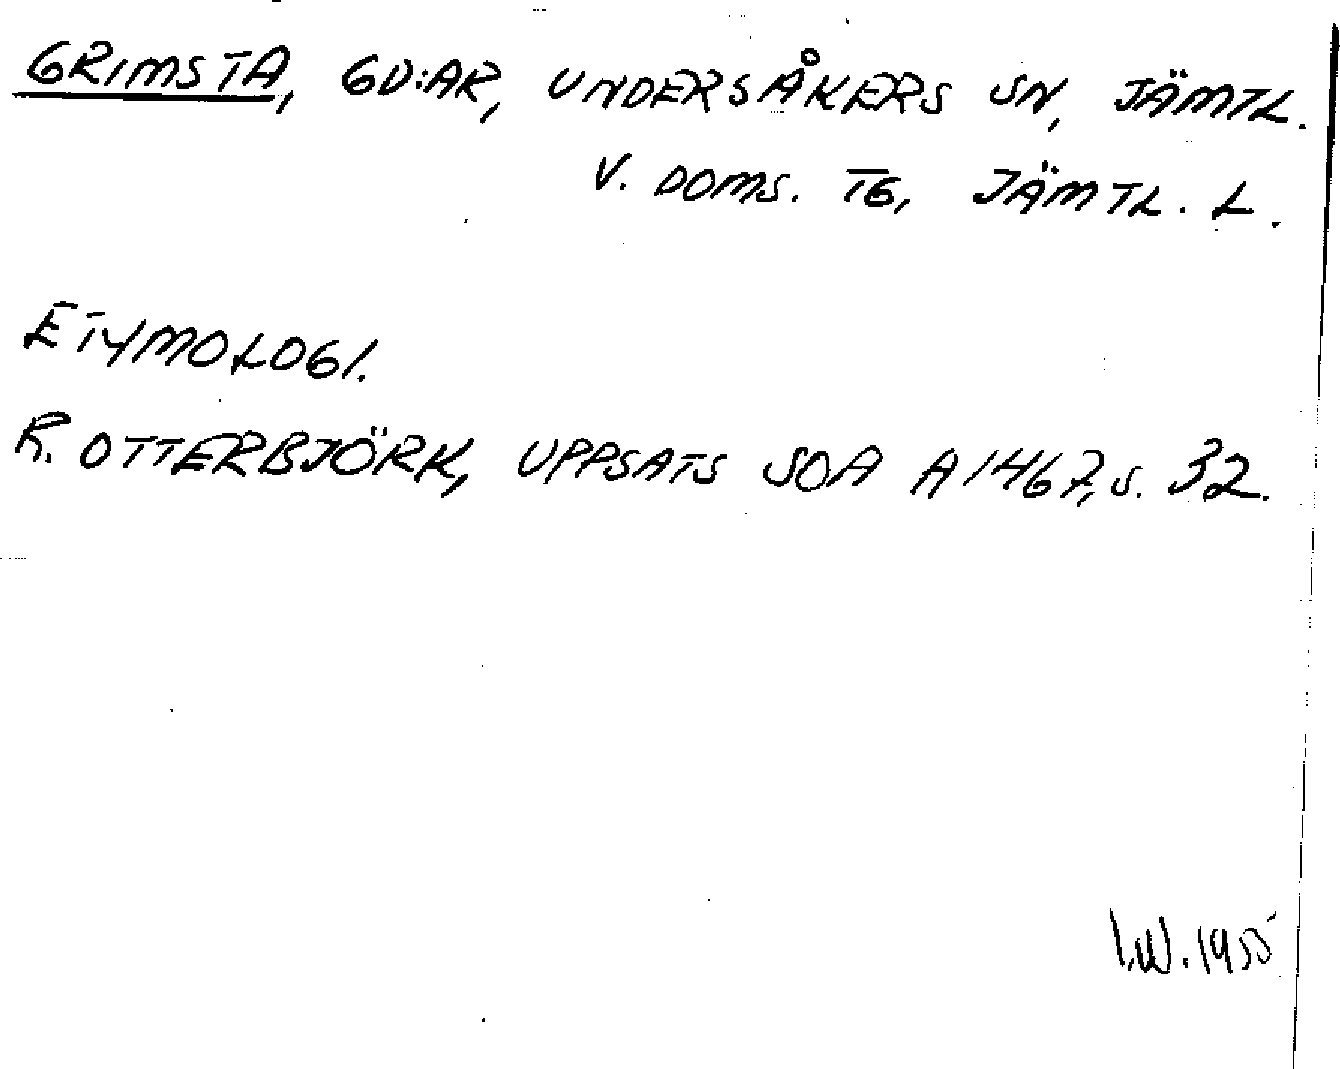 GRIMSTA, GD:AR, UNDERSÅKERS SN, JÄMTL.
V. DOMS. TG, JÄMTL. L.
ETYMOLOGI.
R. OTTERBJÖRK, UPPSATS SOA A1467, S. 32.
I.W. 1955